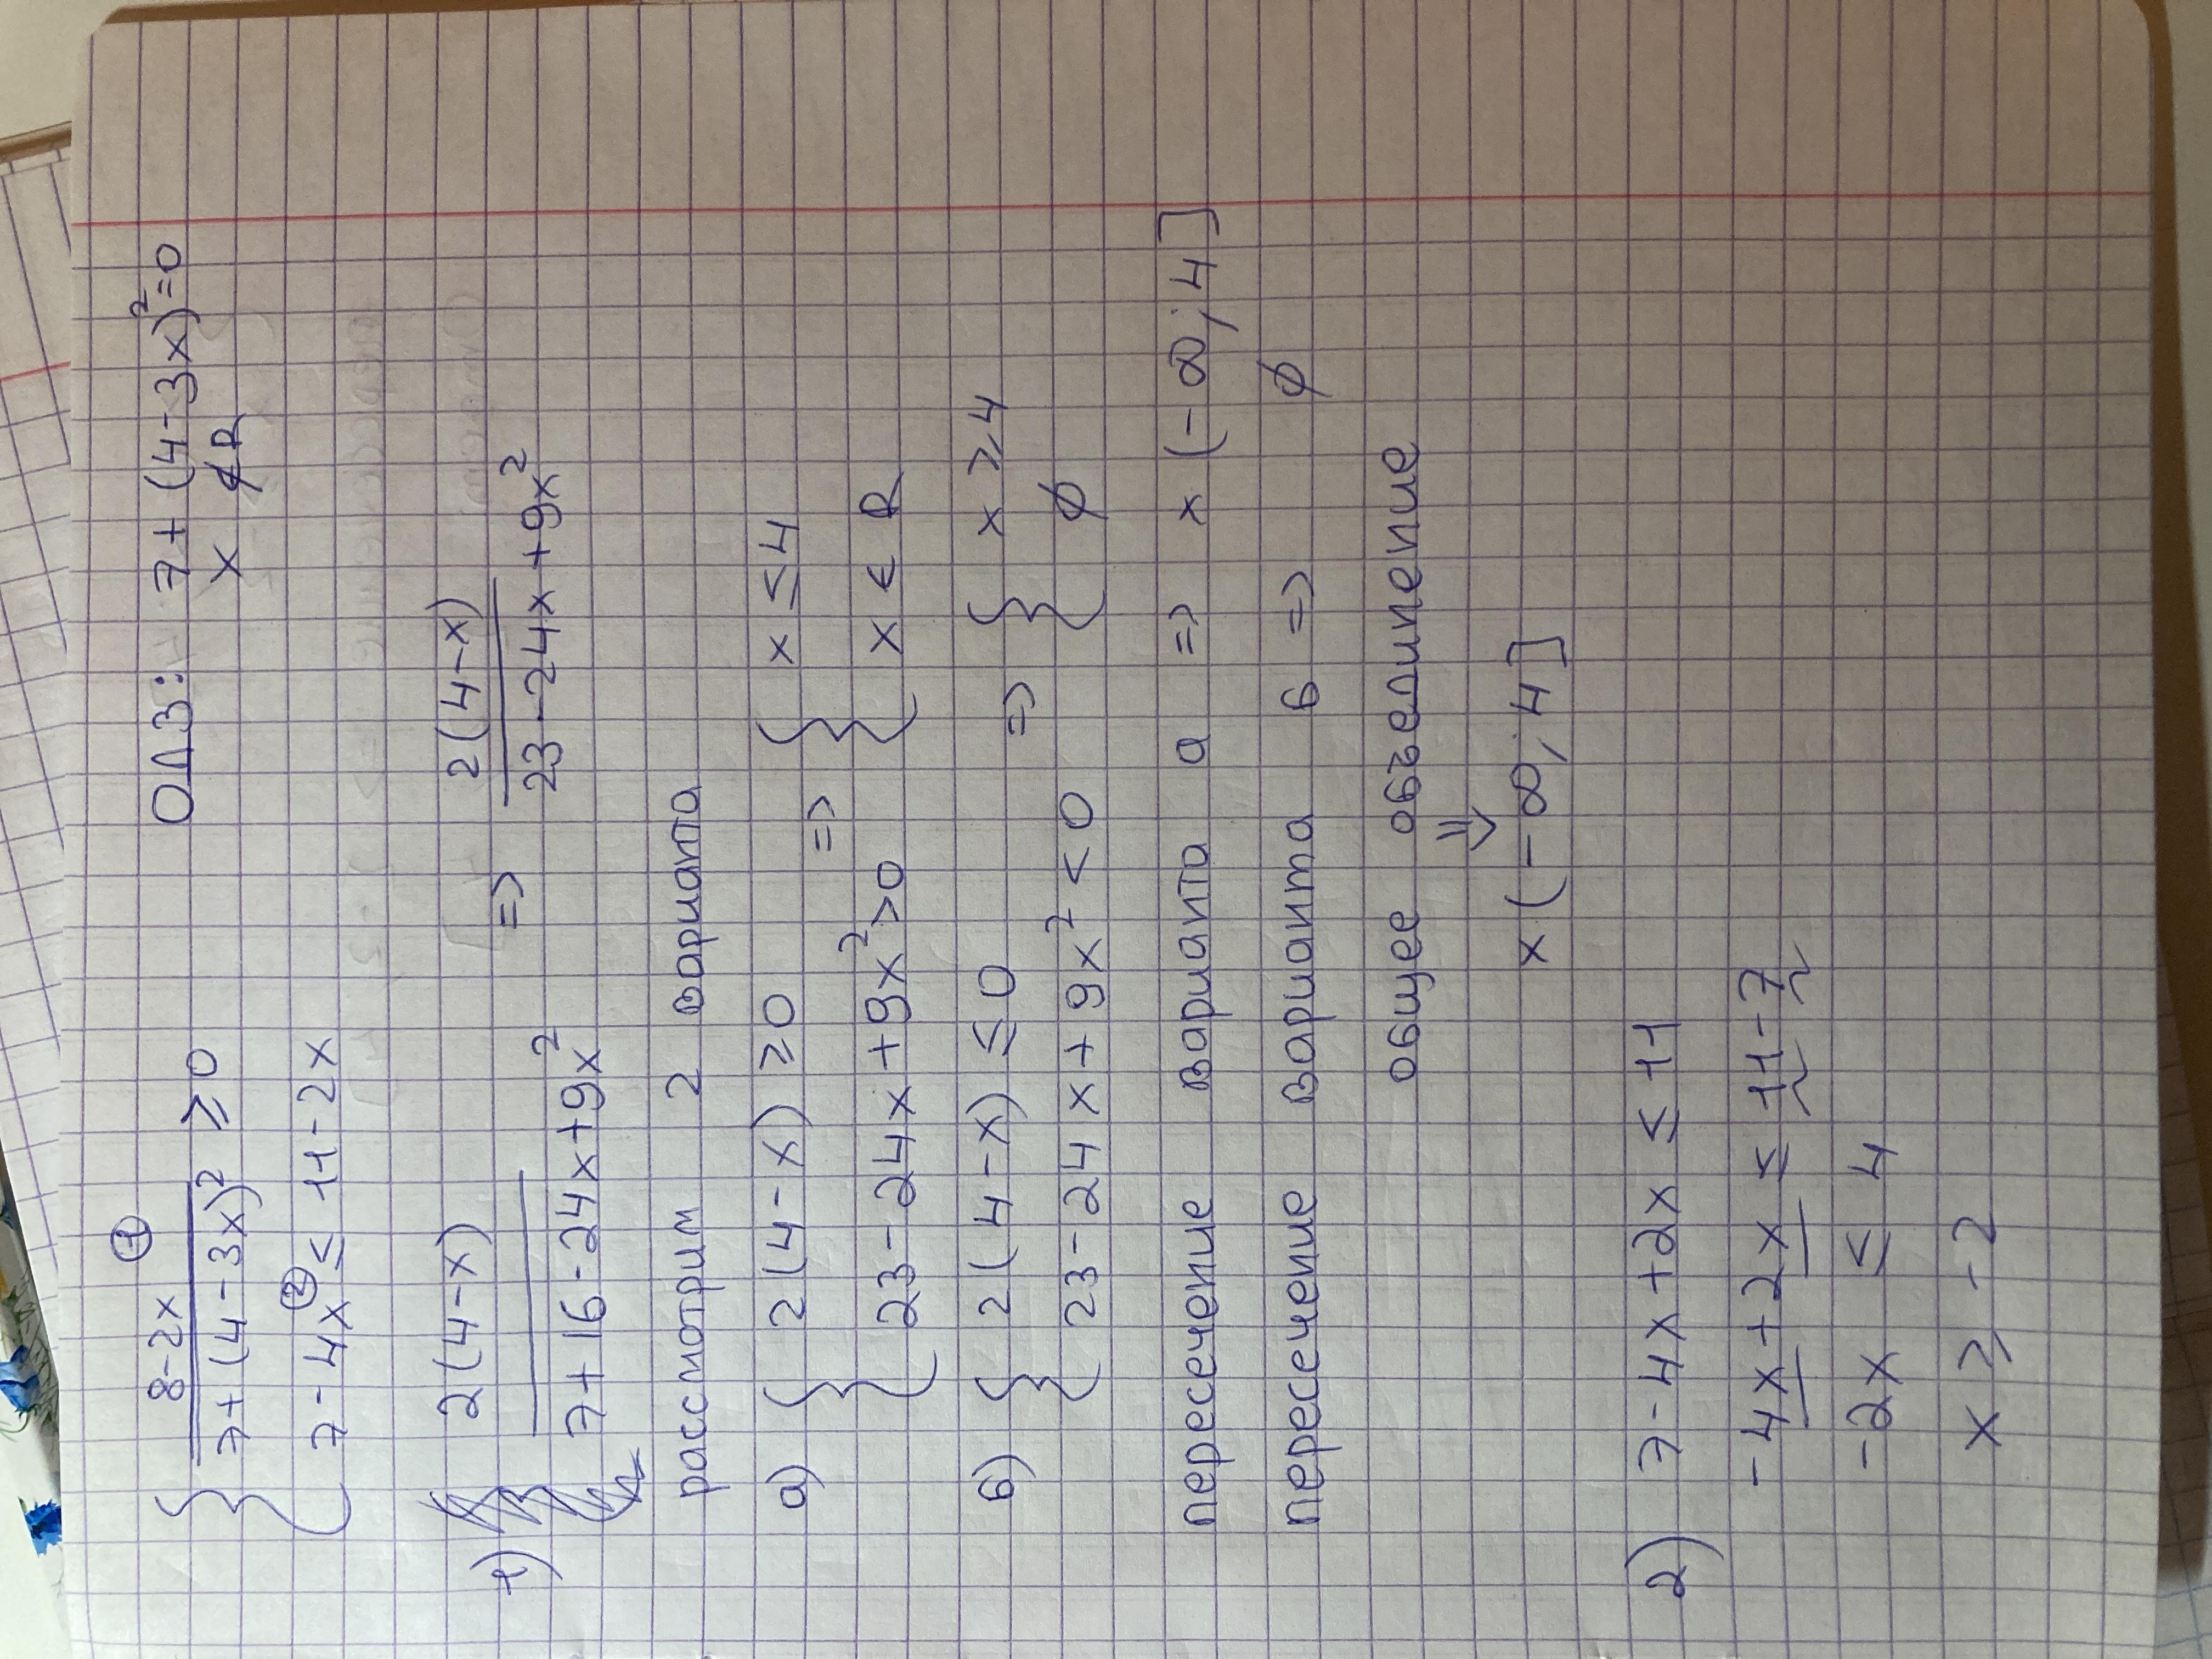 ① 8-2x / 7+(4-3x)² ≥ 0 ОДЗ: 7+(4-3x)²=0
② 7-4x ≤ 11-2x x ∉ R
1) 2(4-x) / 7+16-24x+9x² => 2(4-x) / 23-24x+9x²
рассмотрим 2 варианта
а) { 2(4-x) ≥0 => { x ≤ 4
23-24x+9x²>0 x ∈ R
б) { 2(4-x) ≤ 0 => { x ≥ 4
23-24x+9x² < 0 ∅
пересечение варианта а => x (-∞; 4]
пересечение варианта б => ∅
общее объединение
⇓
x (-∞; 4]
2) 7-4x+2x ≤ 11
-4x+2x ≤ 11-7
-2x ≤ 4
x ≥ -2